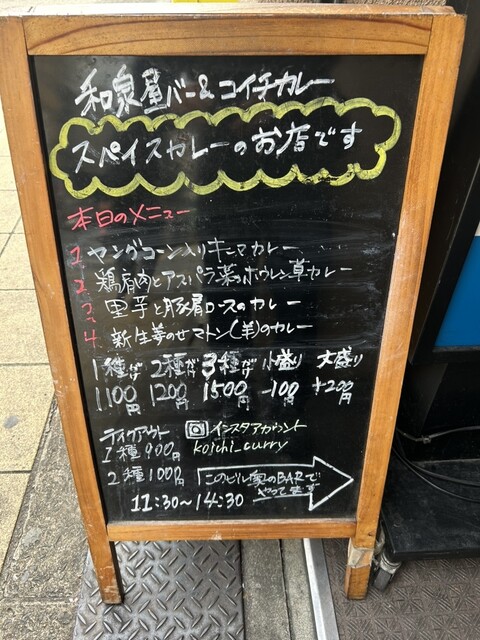 和泉屋バー&コイチカレー
スパイスカレーのお店です
本日のメニュー
1. ヤングコーン入りキーマカレー
2. 鶏肩肉とアスパラ菜のホウレン草カレー
3. 里芋と豚肩ロースのカレー
4. 新生姜のせマトン(羊)のカレー
1種がけ 2種がけ 3種がけ 小盛り 大盛り
1100円 1200円 1500円 -100円 +200円
テイクアウト インスタアカウント
1種900円 koichi_curry
2種1000円 このビル奥のBARで
やってます
11:30～14:30